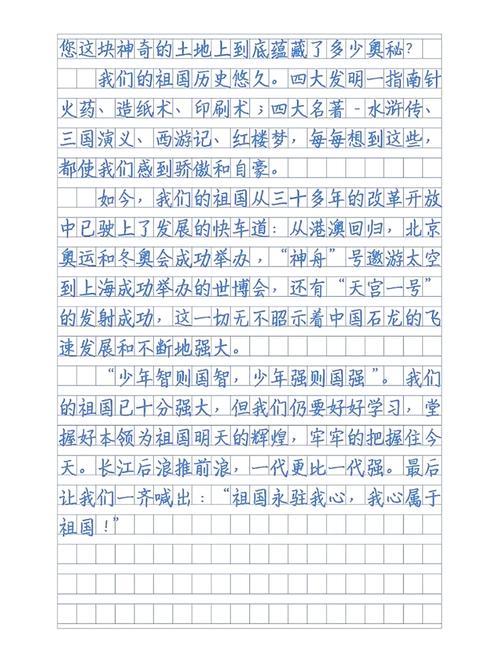 您这块神奇的土地上到底蕴藏了多少奥秘？
我们的祖国历史悠久。四大发明一指南针
火药、造纸术、印刷术；四大名著-水浒传、
三国演义、西游记、红楼梦，每每想到这些，
都使我们感到骄傲和自豪。
如今，我们的祖国从三十多年的改革开放
中已驶上了发展的快车道：从港澳回归，北京
奥运和冬奥会成功举办，“神舟”号遨游太空
到上海成功举办的世博会，还有“天宫一号”
的发射成功，这一切无不昭示着中国石龙的飞
速发展和不断地强大。
“少年智则国智，少年强则国强”。我们
的祖国已十分强大，但我们仍要好好学习，堂
握好本领为祖国明天的辉煌，牢牢的把握住今
天。长江后浪推前浪，一代更比一代强。最后
让我们一齐喊出：“祖国永驻我心，我心属于
祖国！”